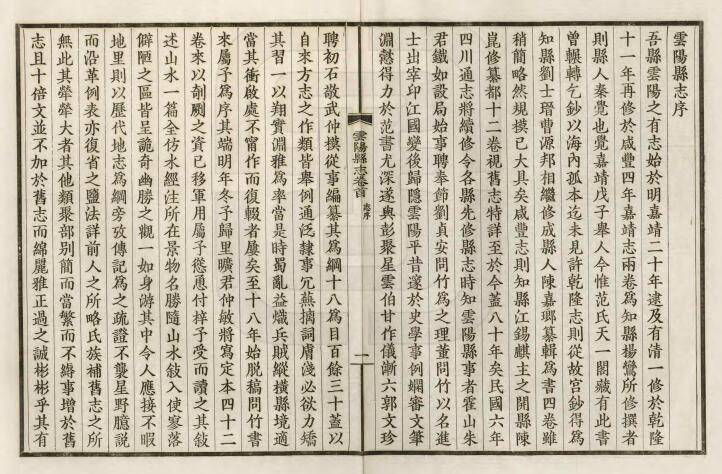 雲陽縣志序
吾縣雲陽之有志始於明嘉靖二十年逮及有清一修於乾隆
十一年再修於咸豐四年嘉靖志兩卷為知縣楊鸞所修撰者
則縣人秦覺也覺嘉靖戊子舉人今惟范氏天一閣藏有此書
曾輾轉乞鈔以海內孤本迄未見許乾隆志則從故宮鈔得為
知縣劉士瑨曹源邦相繼修成縣人陳嘉瑯纂輯為書四卷雖
稍簡略然規模已大具矣咸豐志則知縣江錫麒主之開縣陳
崑修纂都十二卷視舊志特詳至於今蓋八十年矣民國六年
四川通志將續修令各縣先修縣志時知雲陽縣事者霍山朱
君鐵如設局始事聘奉節劉貞安問竹為之理董問竹以名進
士出宰卬江國變後歸隱雲陽平昔邃於史學事例嫻審文筆
淵懿得力於范書尤深遂與彭聚星雲伯甘作儀漸六郭文珍
雲陽縣志卷首
志序
一
聘初石敬武仲撲從事編纂其為綱十八為目百餘三十蓋以
自來方志之作類皆舉例通泛隸事冗蕪摛詞膚淺必欲力矯
其習一以翔實淵雅為率當是時蜀亂益熾兵賊縱橫縣境適
當其衝啟處不甯作而復輟者屢矣至十八年始脫稿問竹書
來屬予為序其端明年冬予歸里曠君仲敏將寫定本四十二
卷來以剞劂之資已移軍用屬予慫恿付梓予受而讀之其敍
述山水一篇全仿水經注所在景物名勝隨山水敍入使寥落
僻陋之區皆呈詭奇幽勝之觀一如身游其中令人應接不暇
地里則以歷代地志為綱旁攷傳記為之疏證不襲星野臆說
而沿革例表亦復省之鹽法詳前人之所略氏族補舊志之所
無此其犖犖大者其他類聚部別簡而當繁而不縟事增於舊
志且十倍文並不加於舊志而綿麗雅正過之誠彬彬乎其有